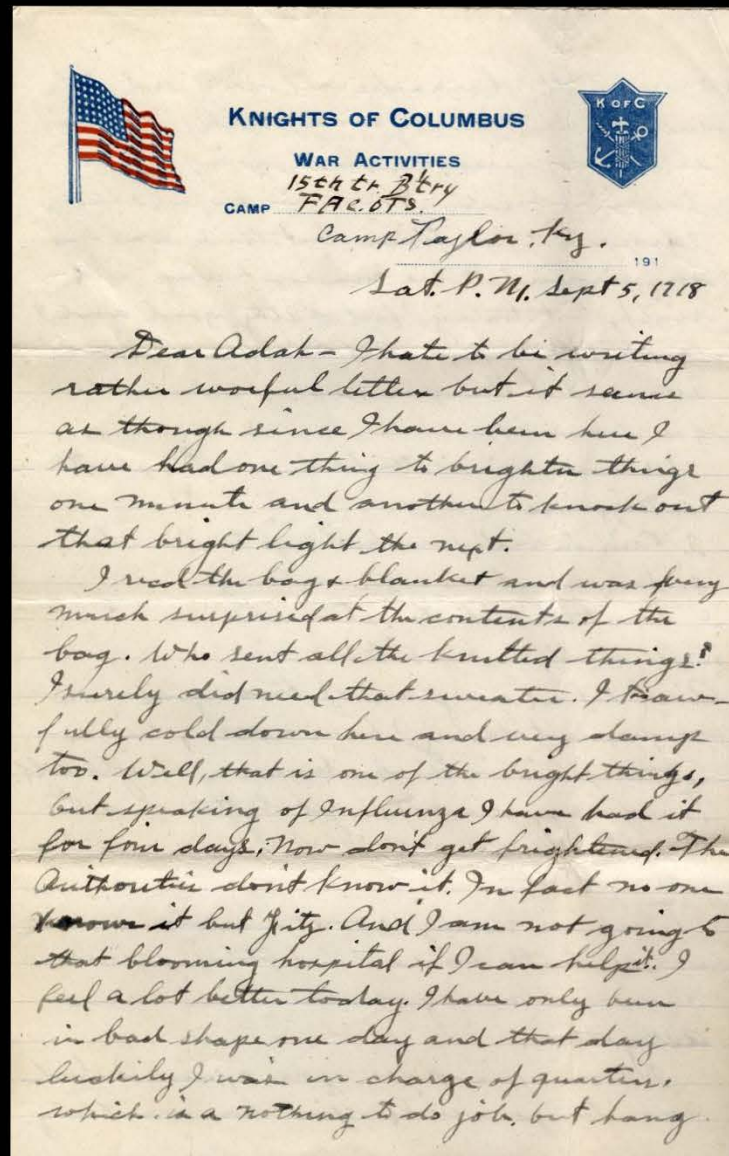 K OF C
KNIGHTS OF COLUMBUS
WAR ACTIVITIES
15th tr. B'try
CAMP F.A.C.O.T.S.
Camp Taylor, Ky.
191
Sat. P.M. Sept 5, 1918
Dear Adah – I hate to be writing
rather woeful letter but it seems
as though since I have been here I
have had one thing to brighten things
one minute and another to knock out
that bright light the next.
I recd the bag & blanket and was very
much surprised at the contents of the
bag. Who sent all the knitted things?
I surely did need that sweater. I
fully cold down here and very damp
too. Well, that is one of the bright things,
but speaking of Influenza I have had it
for four days. Now don't get frightened. The
Authorities don't know it. In fact no one
knows it but Fitz. And I am not going to
that blooming hospital if I can help it. I
feel a lot better today. I have only been
in bad shape one day and that day
luckily I was in charge of quarters,
which is a nothing to do job, but hang